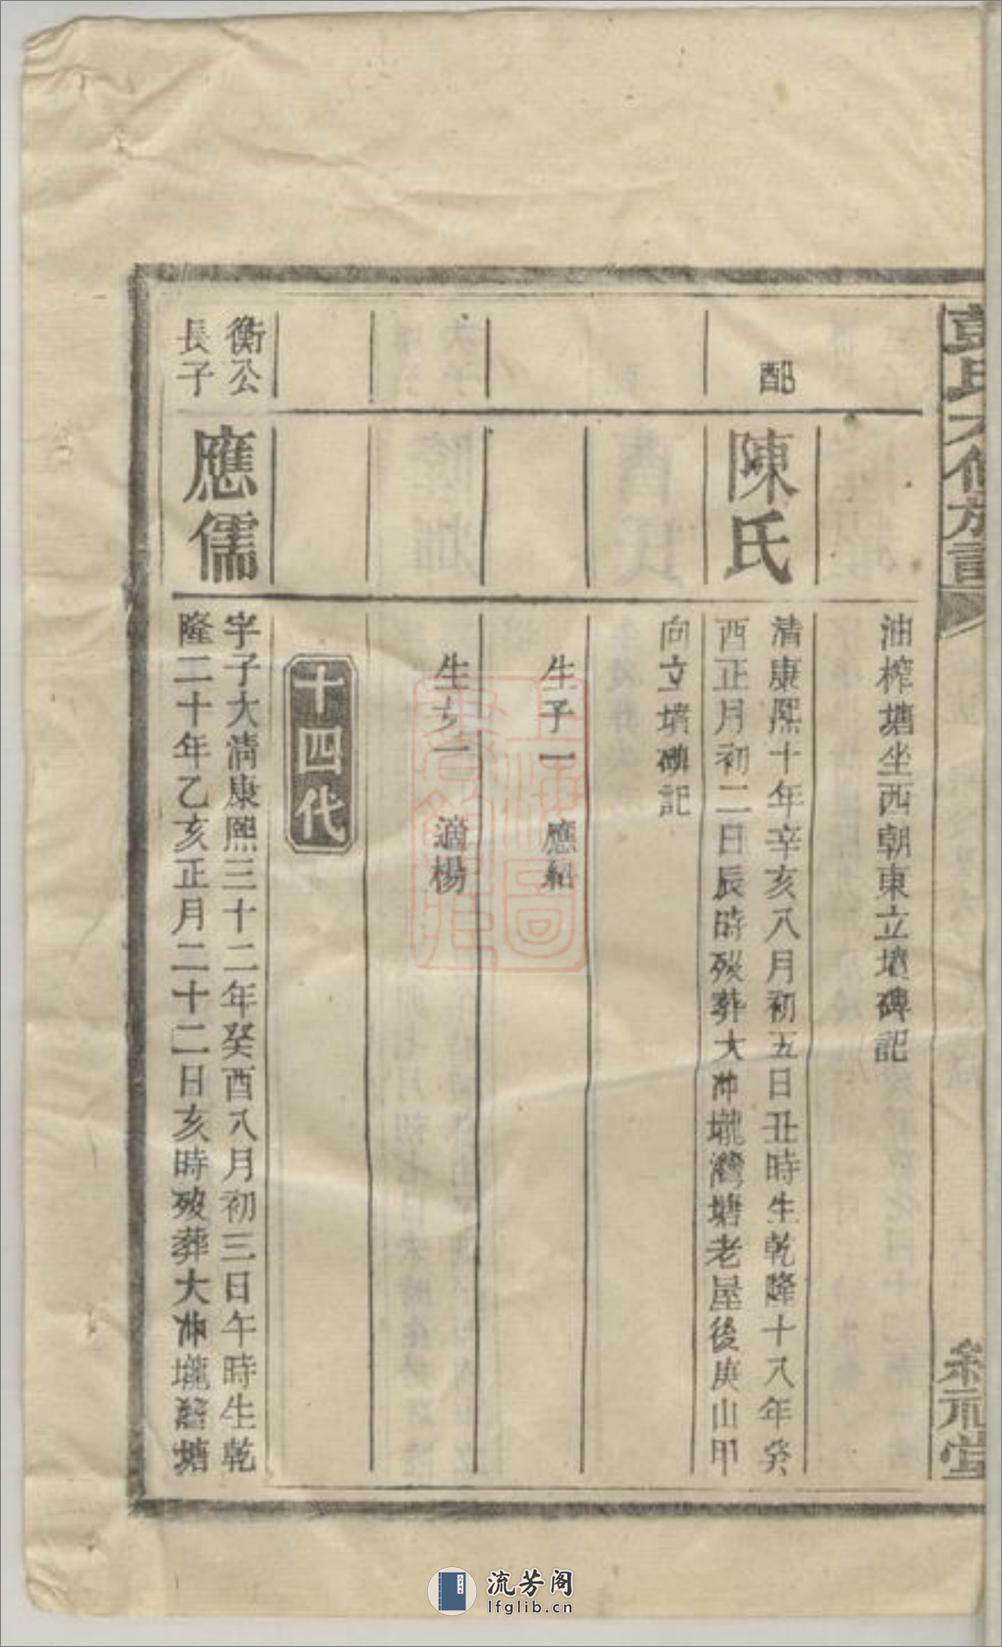 彭氏六修族譜
油榨塘坐西朝東立墳碑記
配
陳氏
清康熙十年辛亥八月初五日丑時生乾隆十八年癸
酉正月初二日辰時歿葬大冲壠灣塘老屋後庚山甲
向立墳碑記
生子一 應紹
生女一 適楊
十四代
衡公
長子
應儒
字子大清康熙三十二年癸酉八月初三日午時生乾
隆二十年乙亥正月二十二日亥時歿葬大冲壠灣塘
上海圖
書館藏
流芳阁
lfglib.cn